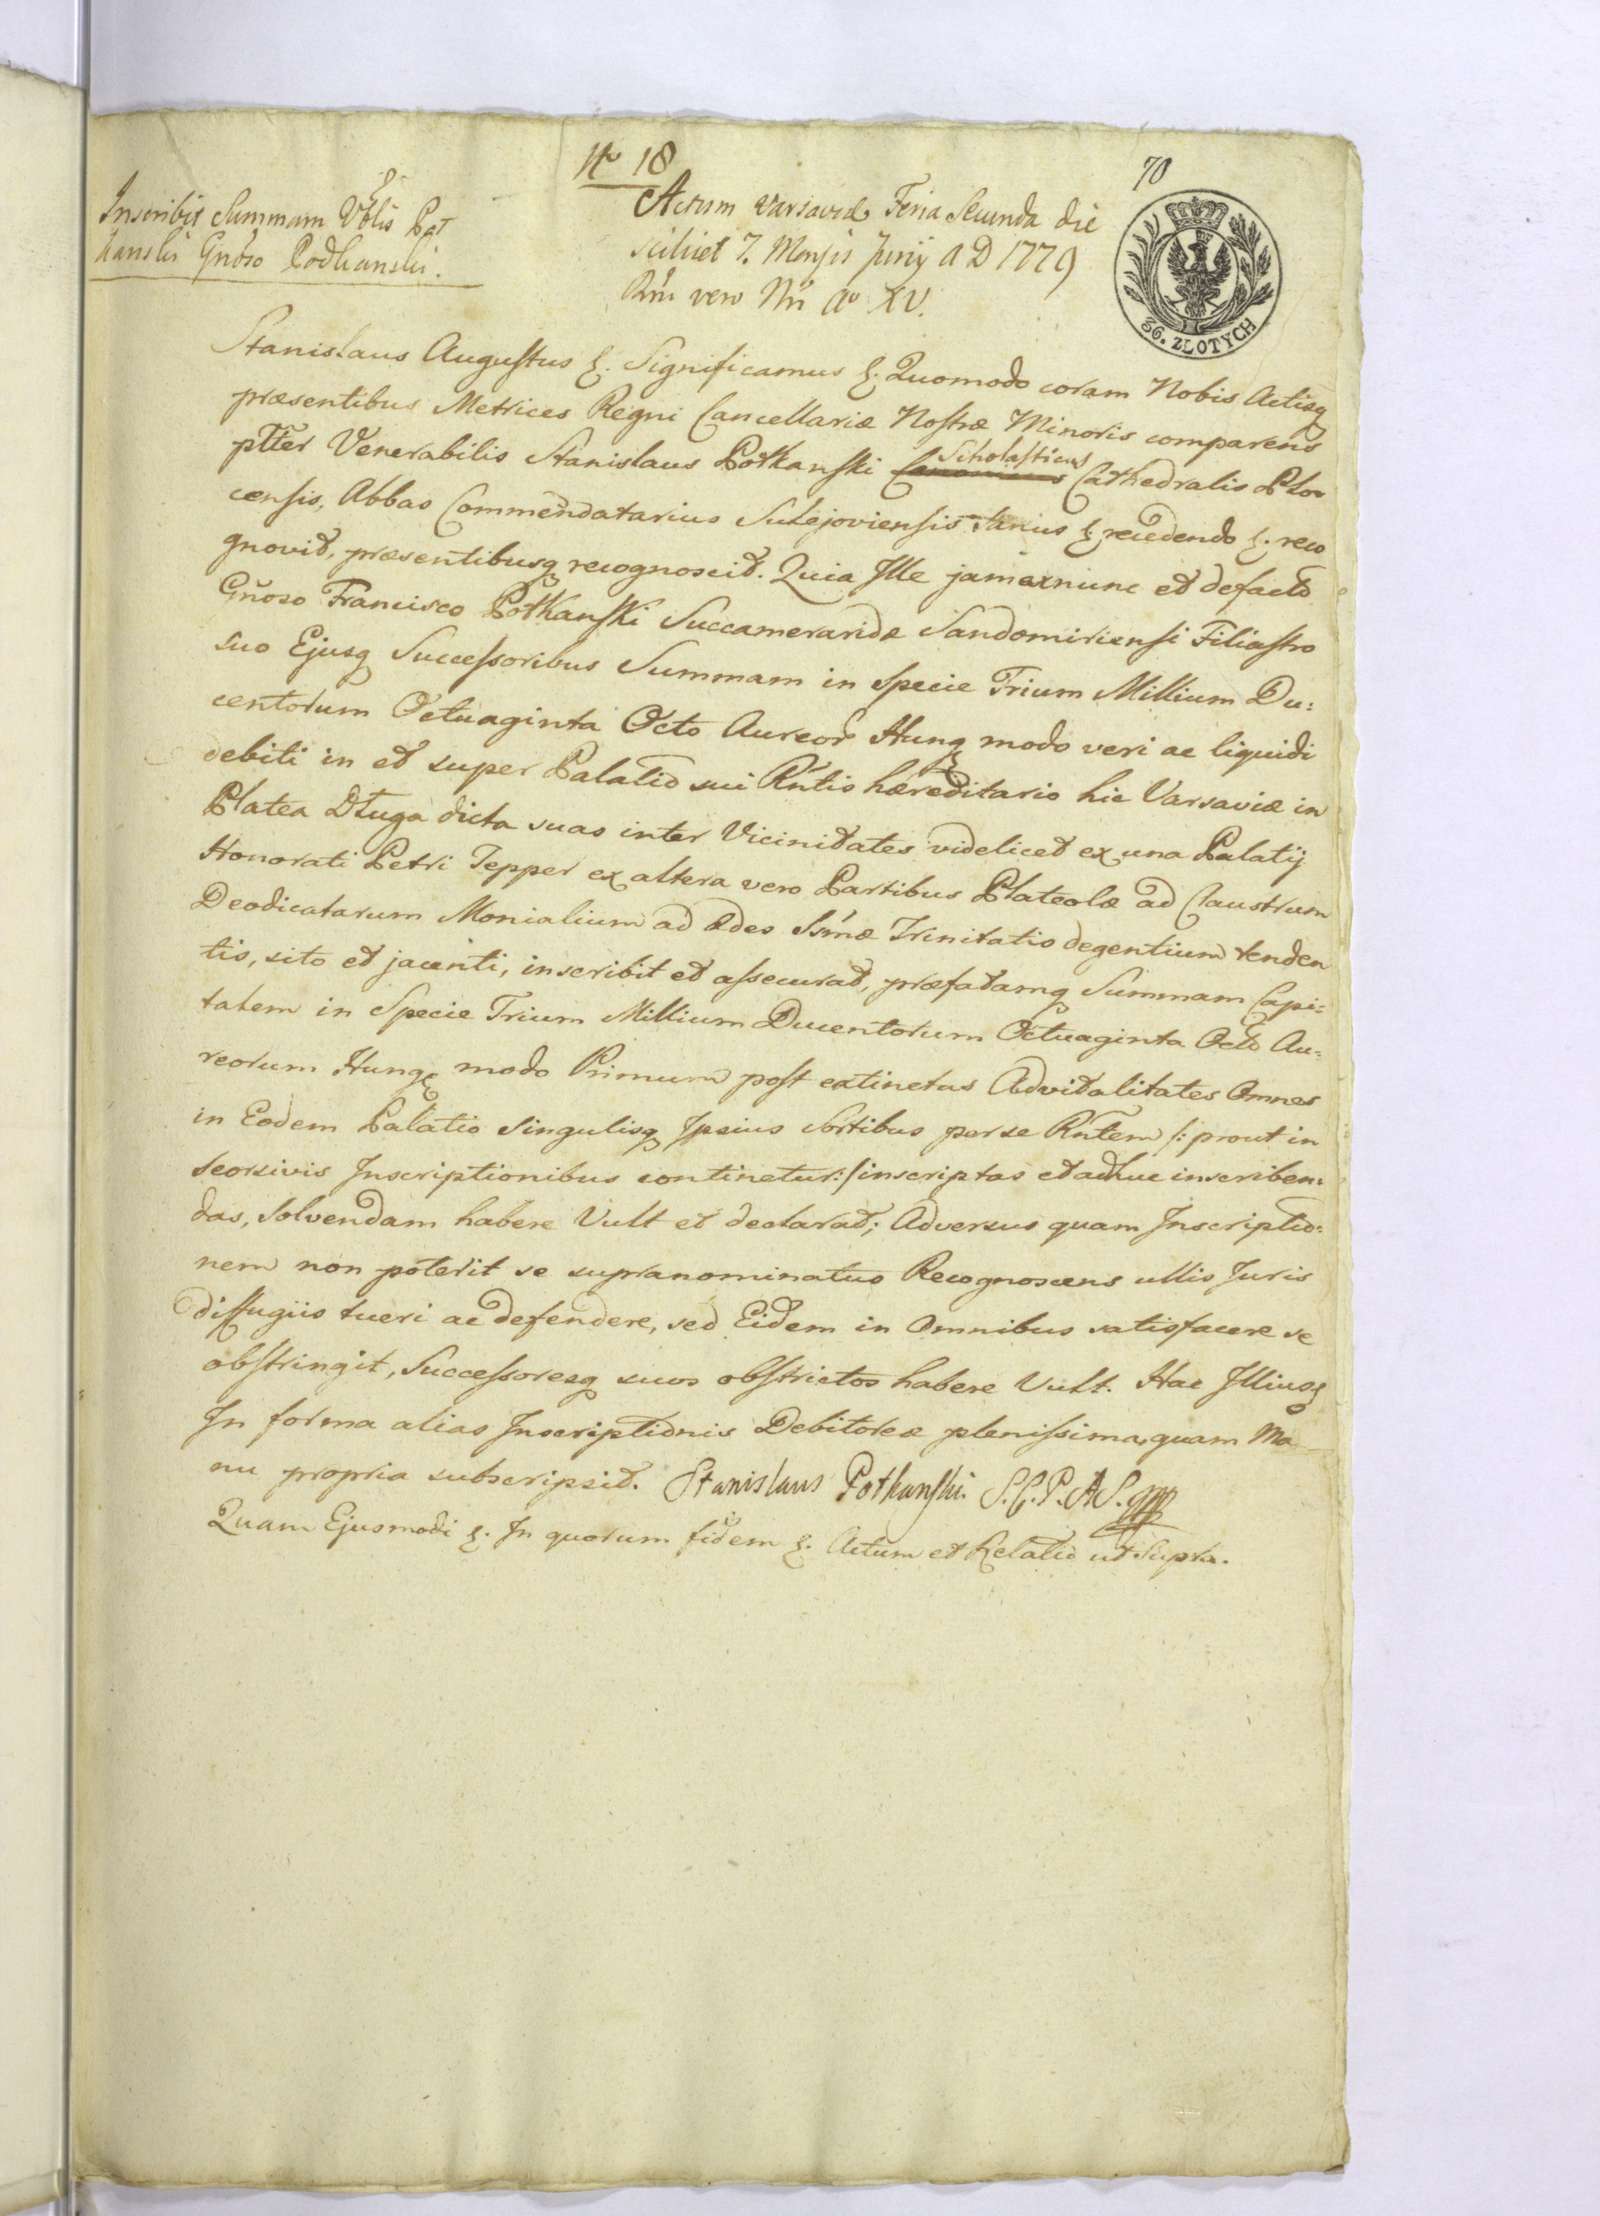 Nr 18
70
Inscribit Summam Vblis Pot
kanski Gnoso Podkanski.
Actum Varsaviæ Feria Secunda die
scilicet 7. Mensis Junij A D 1779
Rni vero Nri Ao XV.
36. ZŁOTYCH
Stanislaus Augustus &. Significamus &. Quomodo coram Nobis Actisq
præsentibus Metrices Regni Cancellariæ Nostræ Minoris comparens
pltter Venerabilis Stanislaus Potkanski Canonicus Scholasticus Cathedralis Plo
censis, Abbas Commendatarius Sulejoviensis sanus & recedendo &. reco
gnovit, præsentibusq recognoscit. Quia Ille jam exnunc et defacto
Gnoso Francisco Potkanski Succamerarida Sandomiriensi Filiastro
suo Ejusq Successoribus Summam in Specie Trium Millium Du:
centorum Octuaginta Octo Aureor Hung modo veri ac liquidi
debiti in et super Palatio sui Rntis hæreditario hic Varsaviæ in
Platea Długa dicta suas inter Vicinitates videlicet ex una Palatij
Honorati Petri Tepper ex altera vero Partibus Plateolæ ad Claustrum
Deodicatarum Monialium ad Ædes Ssmæ Trinitatis degentium tenden
tis, sito et jacenti, inscribit et assecurat, præfatamq Summam Capi:
talem in Specie Trium Millium Ducentorum Octuaginta Octo Au:
reorum Hung modo Primum post extinctas Advitalitates Omnes
in Eodem Palatio singulisq Ipsius Sortibus per se Rntem /: prout in
seorsivis Inscriptionibus continetur :/ inscriptas et adhuc inscriben:
das, solvendam habere Vult et declarat; Adversus quam Inscriptio:
nem non poterit se supranominatus Recognoscens ullis Juris
diffugiis tueri ac defendere, sed Eidem in Omnibus satisfacere se
obstringit, Successoresq suos obstrictos habere Vult. Hac Illius
In forma alias Inscriptionis Debitoreæ plenissima, quam Ma
nu propria subscripsit. Stanislaus Potkanski. S. C. P. A S. mpp
Quam Ejusmodi &. In quorum fidem &. Actum et Relatio ut Supra.